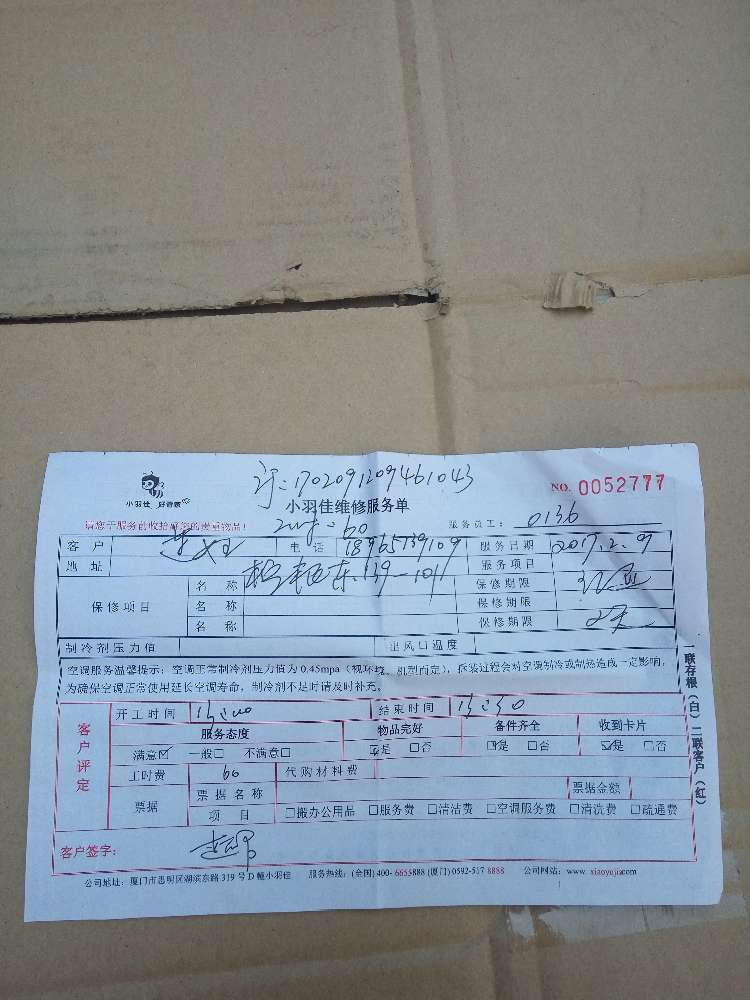 订:170209120946 1043
小羽佳 好管家
小羽佳维修服务单
NO. 0052777
请您于服务前收拾好您的贵重物品!
60
服务员工: 0136
客户 电话 18965139109 服务日期 2017.2.9
地址 东139-1011 服务项目
保修项目 名称 保修期限
名称 保修期限
名称 保修期限
制冷剂压力值 出风口温度
空调服务温馨提示:空调正常制冷剂压力值为0.45mpa(视环境、机型而定),拆装过程会对空调制冷或制热造成一定影响,
为确保空调正常使用延长空调寿命,制冷剂不足时请及时补充。
客户评定
开工时间 15:00 结束时间 15:30
服务态度 物品完好 备件齐全 收到卡片
满意☑ 一般□ 不满意□ ☑是 □否 ☑是 □否 ☑是 □否
工时费 60 代购材料费
票据 票据名称 票据金额
项目 □搬办公用品 □服务费 □清洁费 □空调服务费 □清洗费 □疏通费
客户签字:
公司地址:厦门市思明区湖滨东路319号D幢小羽佳 服务热线:(全国)400-6655888 (厦门)0592-517 8888 公司网站:www.xiaoyujia.com
联存根(白)二联客户(红)